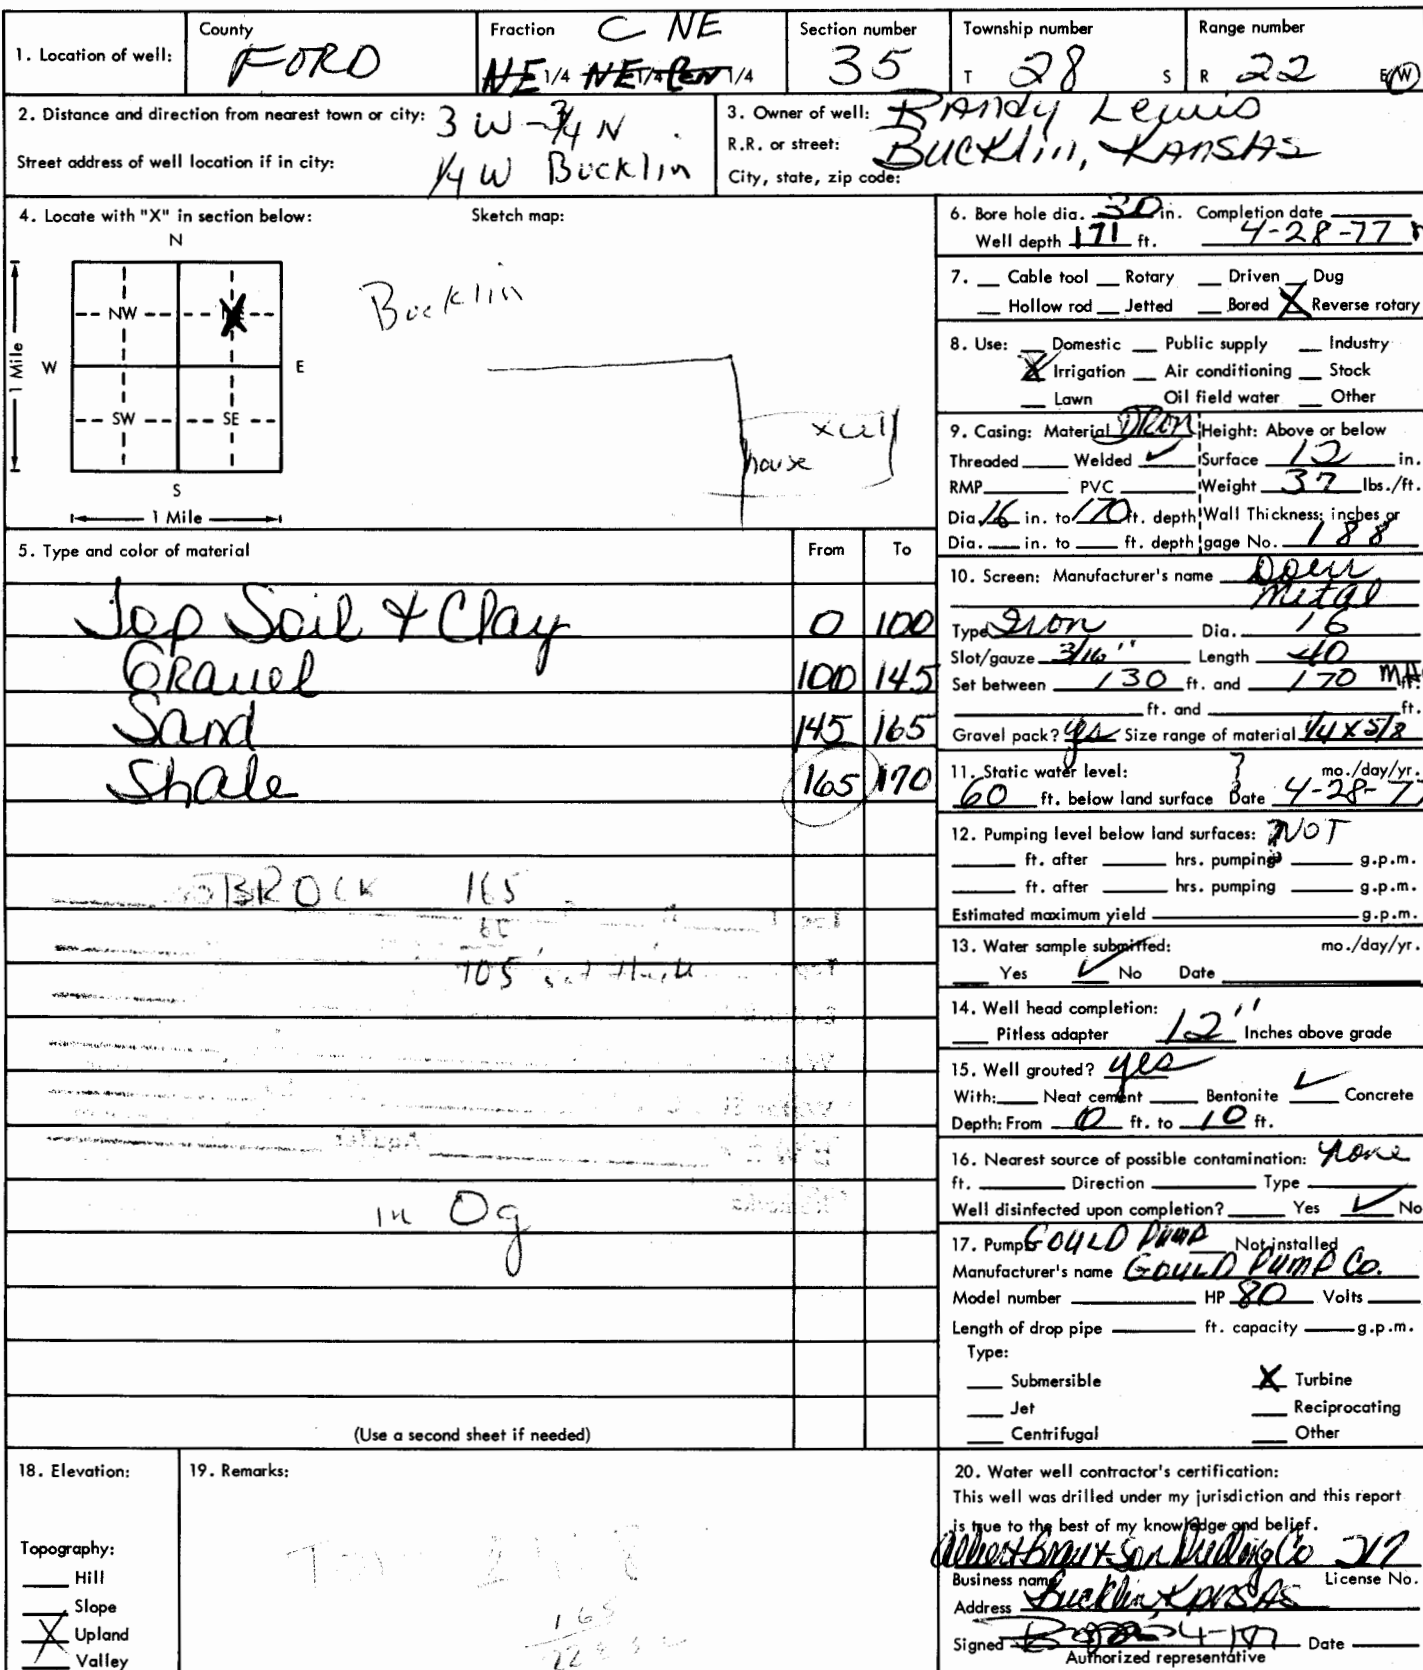 1. Location of well: County FORD Fraction C NE NE 1/4 NE 1/4 1/4 Section number 35 Township number T 28 S Range number R 22 E/W
2. Distance and direction from nearest town or city: 3 W - 3/4 N
Street address of well location if in city: 1/4 W Bucklin
3. Owner of well: Randy Lewis
R.R. or street: Bucklin, KANSAS
City, state, zip code:
4. Locate with "X" in section below: Sketch map:
N
NW NE
W E
SW SE
S
1 Mile
1 Mile
Bucklin
house
5. Type and color of material From To
Top Soil & Clay 0 100
Gravel 100 145
Sand 145 165
Shale 165 170
BROCK 165
105
in Og
(Use a second sheet if needed)
6. Bore hole dia. 30 in. Completion date
Well depth 171 ft. 4-28-77
7. Cable tool Rotary Driven Dug
Hollow rod Jetted Bored X Reverse rotary
8. Use: Domestic Public supply Industry
X Irrigation Air conditioning Stock
Lawn Oil field water Other
9. Casing: Material IRON Height: Above or below
Threaded Welded ✓ Surface 12 in.
RMP PVC Weight 37 lbs./ft.
Dia. 16 in. to 170 ft. depth Wall Thickness: inches or
Dia. in. to ft. depth gage No. 188
10. Screen: Manufacturer's name Doerr
Metal
Type Iron Dia. 16
Slot/gauze 3/16" Length 40
Set between 130 ft. and 170
ft. and ft.
Gravel pack? yes Size range of material 1/4 x 5/8
11. Static water level: mo./day/yr.
60 ft. below land surface Date 4-28-77
12. Pumping level below land surfaces: NOT
ft. after hrs. pumping g.p.m.
ft. after hrs. pumping g.p.m.
Estimated maximum yield g.p.m.
13. Water sample submitted: mo./day/yr.
Yes ✓ No Date
14. Well head completion:
Pitless adapter 12" Inches above grade
15. Well grouted? yes
With: Neat cement Bentonite ✓ Concrete
Depth: From 0 ft. to 10 ft.
16. Nearest source of possible contamination: none
ft. Direction Type
Well disinfected upon completion? Yes ✓ No
17. Pump: GOULD PUMP Not installed
Manufacturer's name GOULD PUMP Co.
Model number HP 80 Volts
Length of drop pipe ft. capacity g.p.m.
Type:
Submersible X Turbine
Jet Reciprocating
Centrifugal Other
18. Elevation:
Topography:
Hill
Slope
X Upland
Valley
19. Remarks:
165
20. Water well contractor's certification:
This well was drilled under my jurisdiction and this report
is true to the best of my knowledge and belief.
Drilling Co 217
Business name License No.
Address Bucklin, Kansas
Signed Date
Authorized representative